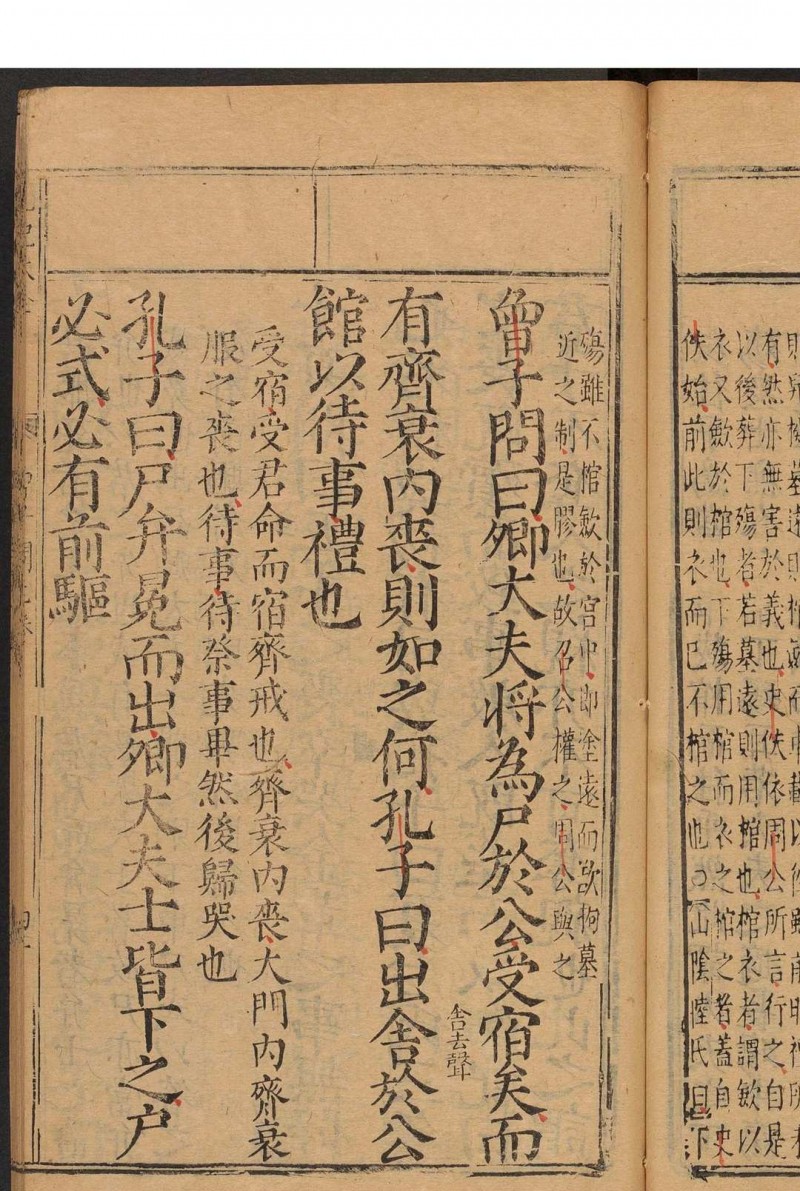 有然亦無害於義也史佚依周公所言行之自是
以後葬下殤者若墓遠則用棺也棺衣者謂斂以
衣又斂於棺也下殤用棺而衣之棺之者蓋自史
佚始前此則衣而已不棺之也○山陰陸氏曰下
殤雖不棺斂於宮中即塗遠而欲拘墓
近之制是膠也故召公權之周公與之
曾子問曰卿大夫將為尸於公受宿矣而
有齊衰内喪則如之何孔子曰出舍於公
舍去聲
館以待事禮也
受宿受君命而宿齊戒也齊衰内喪大門内齊衰
服之喪也待事待祭事畢然後歸哭也
孔子曰尸弁冕而出卿大夫士皆下之尸
必式必有前驅